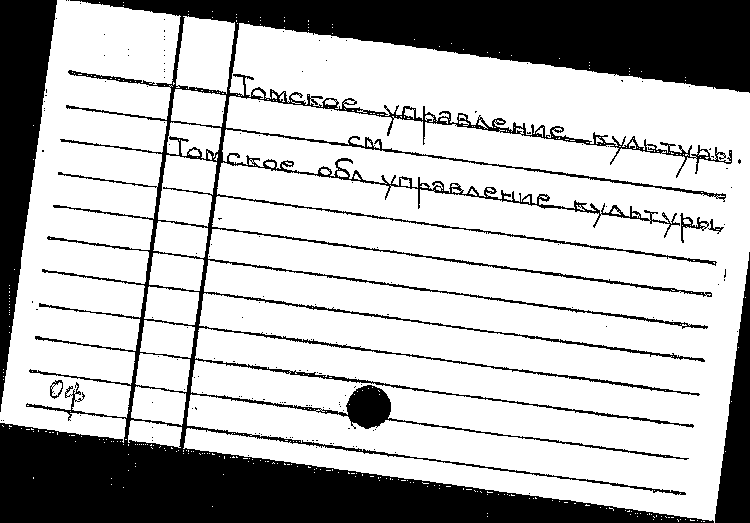 Томское управление культуры.
см.
Томское обл управление культуры
Оф